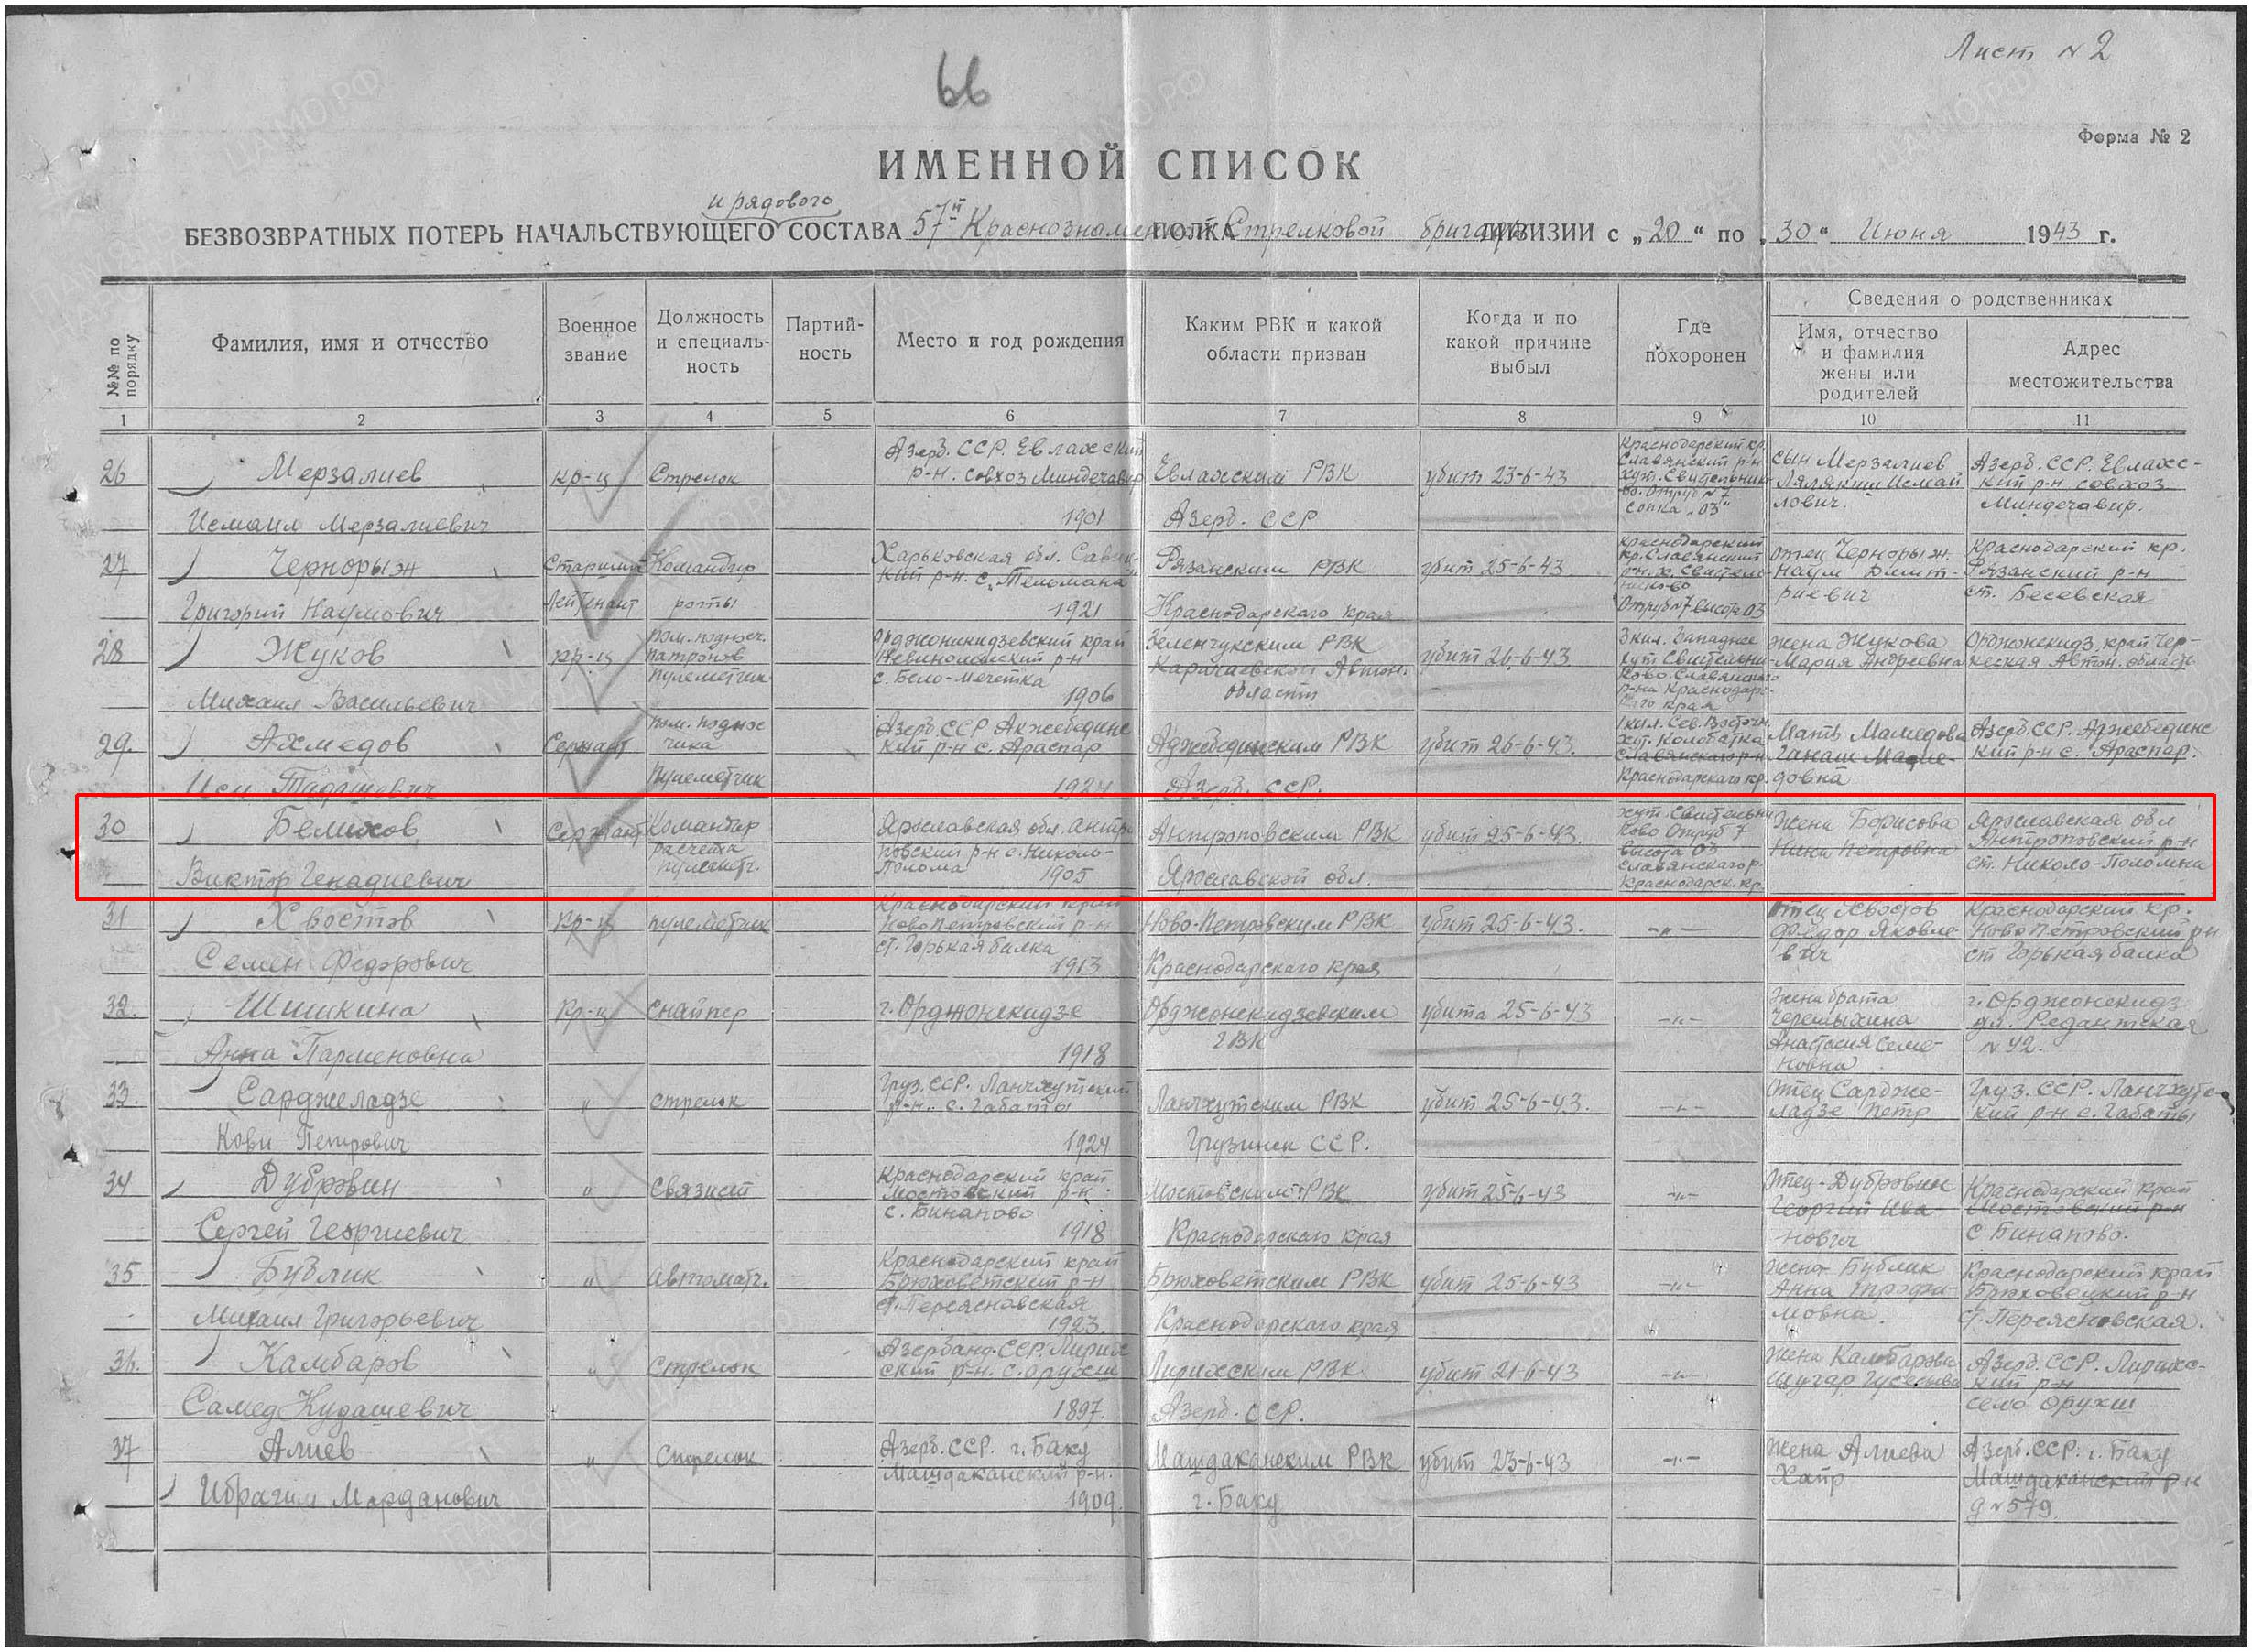 Лист № 2
66
Форма № 2
ИМЕННОЙ СПИСОК
и рядового
БЕЗВОЗВРАТНЫХ ПОТЕРЬ НАЧАЛЬСТВУЮЩЕГО СОСТАВА 57й Краснознаменной ПОЛКА Стрелковой бригады ДИВИЗИИ с „20“ по „30“ Июня 1943 г.
№№ по порядку
Фамилия, имя и отчество
Военное звание
Должность и специаль-ность
Партий-ность
Место и год рождения
Каким РВК и какой области призван
Когда и по какой причине выбыл
Где похоронен
Сведения о родственниках
Имя, отчество и фамилия жены или родителей
Адрес местожительства
1 2 3 4 5 6 7 8 9 10 11
26 Мерзалиев кр-ц Стрелок Азерб. ССР. Евлахский р-н. совхоз Миндечавир Евлахским РВК убит 23-6-43 Краснодарский кр. Славянский р-н хут. Свидельник Отруб №7 сопка „03“ сын Мерзалиев Исмайлович. Азерб. ССР. Евлахский р-н совхоз Миндечавир.
Исмаил Мерзалиевич 1901 Азерб. ССР
27 Чернорыж Старший Командир Харьковская обл. р-н. с. Тельмана Рязанским РВК убит 25-6-43 Краснодарский кр. Славянский отец Чернорыж Наум Дмит-риевич Краснодарский кр. Рязанский р-н ст. Бесевская
Григорий Наумович Лейтенант роты 1921 Краснодарского края Отруб №7 высота 03
28 Жуков кр-ц пом. поднос. патронов пулеметчик Орджоникидзевский край р-н с. Бело-Мечетка Зеленчукским РВК Карачаевской Автон. области убит 26-6-43 3 кил. Западнее хут. Славянского р-на Краснодарс-кого края жена Жукова Мария Андреевна Орджонекидз. край Чер-кеская Автон. область
Михаил Васильевич 1906
29. Ахмедов Сержант пом. поднос чика Азерб. ССР кий р-н с. Араспар Аджебединским РВК убит 26-6-43. 1 кил. Сев. Восточн. хут. Колобатка Славянского р-н Мать Мамедова Азерб. ССР. Аджебединс кий р-н с. Араспар.
пулеметчик 1924 Азерб. ССР. Краснодарского кр. довна
30 Белихов Сержант Командир расчета пулеметч. Ярославская обл. Антро повский р-н с. Николо-Полома 1905 Антроповским РВК убит 25-6-43. хут. Свистельни ково Отруб 7 высота 03 Славянского р. Краснодарск. кр. Жена Борисова Нина Петровна Ярославская обл Антроповский р-н ст. Николо-Поломна
Виктор Генадиевич Ярославской обл.
31 Хвостов Кр-ц пулеметчик Краснодарский край Ново Петровский р-н ст. Горькая балка Ново-Петровским РВК убит 25-6-43. -"- Отец Хвостов Федор Яковле-вич Краснодарский кр. Ново Петровский р-н ст Горькая балка
Семен Федорович 1913 Краснодарского края
32. Шишкина Кр-ц снайпер г. Орджонекидзе Орджонекидзевским ГВК убита 25-6-43 -"- жена брата Черемыхина Анастасия Семе-новна г. Орджонекидз ул. Редантская № 42.
Анна Парменовна 1918
33. Сарджеладзе " стрелок Груз. ССР. Ланчхутский р-н. с. Габаты Ланчхутским РВК убит 25-6-43. -"- Отец Сардже-ладзе Петр Груз. ССР. Ланчхутс-кий р-н с. Габаты
Кови Петрович 1924 Грузинск ССР.
34 Дубровин " Связист Краснодарский край Мостовский р-н с. Бинапово Мостовским РВК убит 25-6-43 -"- Отец-Дубровин Георгий Ива-нович Краснодарский край Мостовский р-н с Бинапово.
Сергей Георгиевич 1918 Краснодарского края
35 Бублик " автоматч. Краснодарский край Брюховетский р-н ст. Переясновская Брюховетским РВК убит 25-6-43 -"- жена Бублик Анна Трофи-мовна. Краснодарский край Брюховецкий р-н ст. Переясновская.
Михаил Григорьевич 1923. Краснодарского края
36. Камбаров " Стрелок Азербайд. ССР. Лирик ский р-н. с. Орухш Лирихским РВК убит 21-6-43 -"- Жена Камбарова Азерб. ССР. Лирихс-кий р-н село Орухш
Самед Кудашевич 1897. Азерб. ССР.
37 Алиев " Стрелок Азерб. ССР. г. Баку Машдаканский р-н. Машдаканским РВК убит 23-6-43 -"- Жена Алиева Хатр Азерб. ССР. г. Баку Машдаканский р-н д № 579.
Ибрагим Марданович 1909. г. Баку